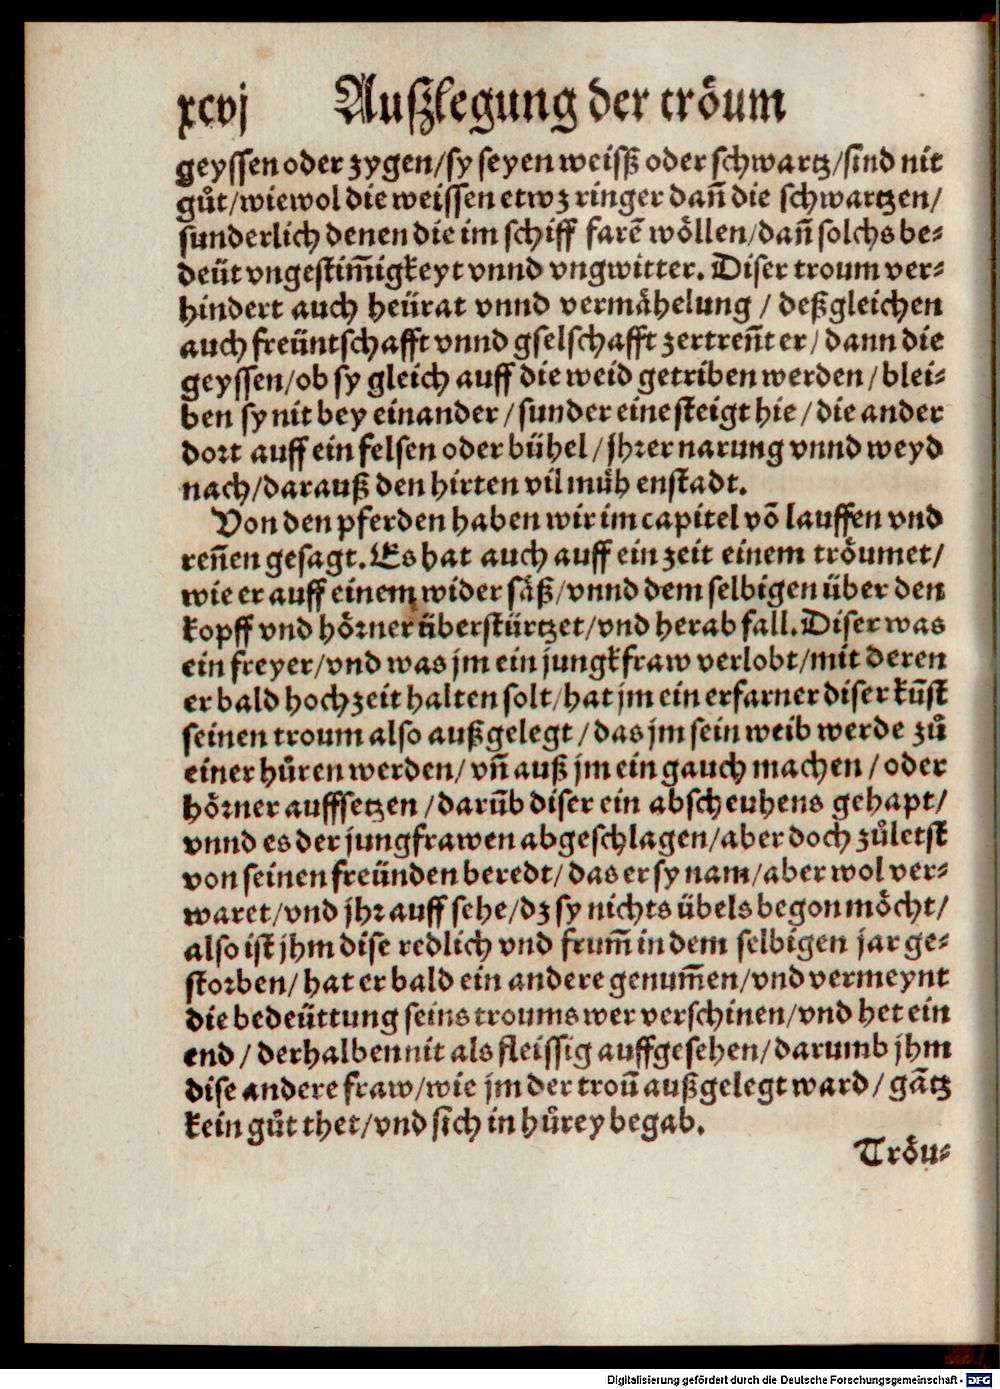 xcvj Außlegung der tröum
geyssen oder zygen/sy seyen weisß oder schwartz/sind nit
gůt/wiewol die weissen etwz ringer dañ die schwartzen/
sunderlich denen die im schiff farē wöllen/dañ solchs be⸗
deüt vngestim̃igkeyt vnnd vngwitter. Diser troum ver⸗
hindert auch heürat vnnd vermähelung / deßgleichen
auch freüntschafft vnnd gselschafft zertreñt er/ dann die
geyssen/ob sy gleich auff die weid getriben werden/ blei⸗
ben sy nit bey einander /sunder eine steigt hie /die ander
dort auff ein felsen oder bühel /jhrer narung vnnd weyd
nach/darauß den hirten vil müh enstadt.
Von den pferden haben wir im capitel vō lauffen vnd
reñen gesagt. Es hat auch auff ein zeit einem tröumet/
wie er auff einem wider säß/vnnd dem selbigen über den
kopff vnd hörner überstürtzet/vnd herab fall. Diser was
ein freyer/vnd was jm ein jungkfraw verlobt/mit deren
er bald hochzeit halten solt/hat jm ein erfarner diser kūst
seinen troum also außgelegt /das jm sein weib werde zů
einer hůren werden/ vñ auß jm ein gauch machen /oder
hörner auffsetzen /darūb diser ein abscheuhens gehapt/
vnnd es der jungfrawen abgeschlagen/aber doch zůletst
von seinen freünden beredt/das er sy nam/aber wol ver⸗
waret/vnd jhr auff sehe/dz sy nichts übels begon möcht/
also ist jhm dise redlich vnd frum̃ in dem selbigen jar ge⸗
storben/ hat er bald ein andere genum̃en/vnd vermeynt
die bedeüttung seins troums wer verschinen/vnd het ein
end / derhalben nit als fleissig auffgesehen/darumb jhm
dise andere fraw/wie jm der troū außgelegt ward/ gātz
kein gůt thet/vnd sich in hůrey begab.
Tröu⸗
Digitalisierung gefördert durch die Deutsche Forschungsgemeinschaft - DFG